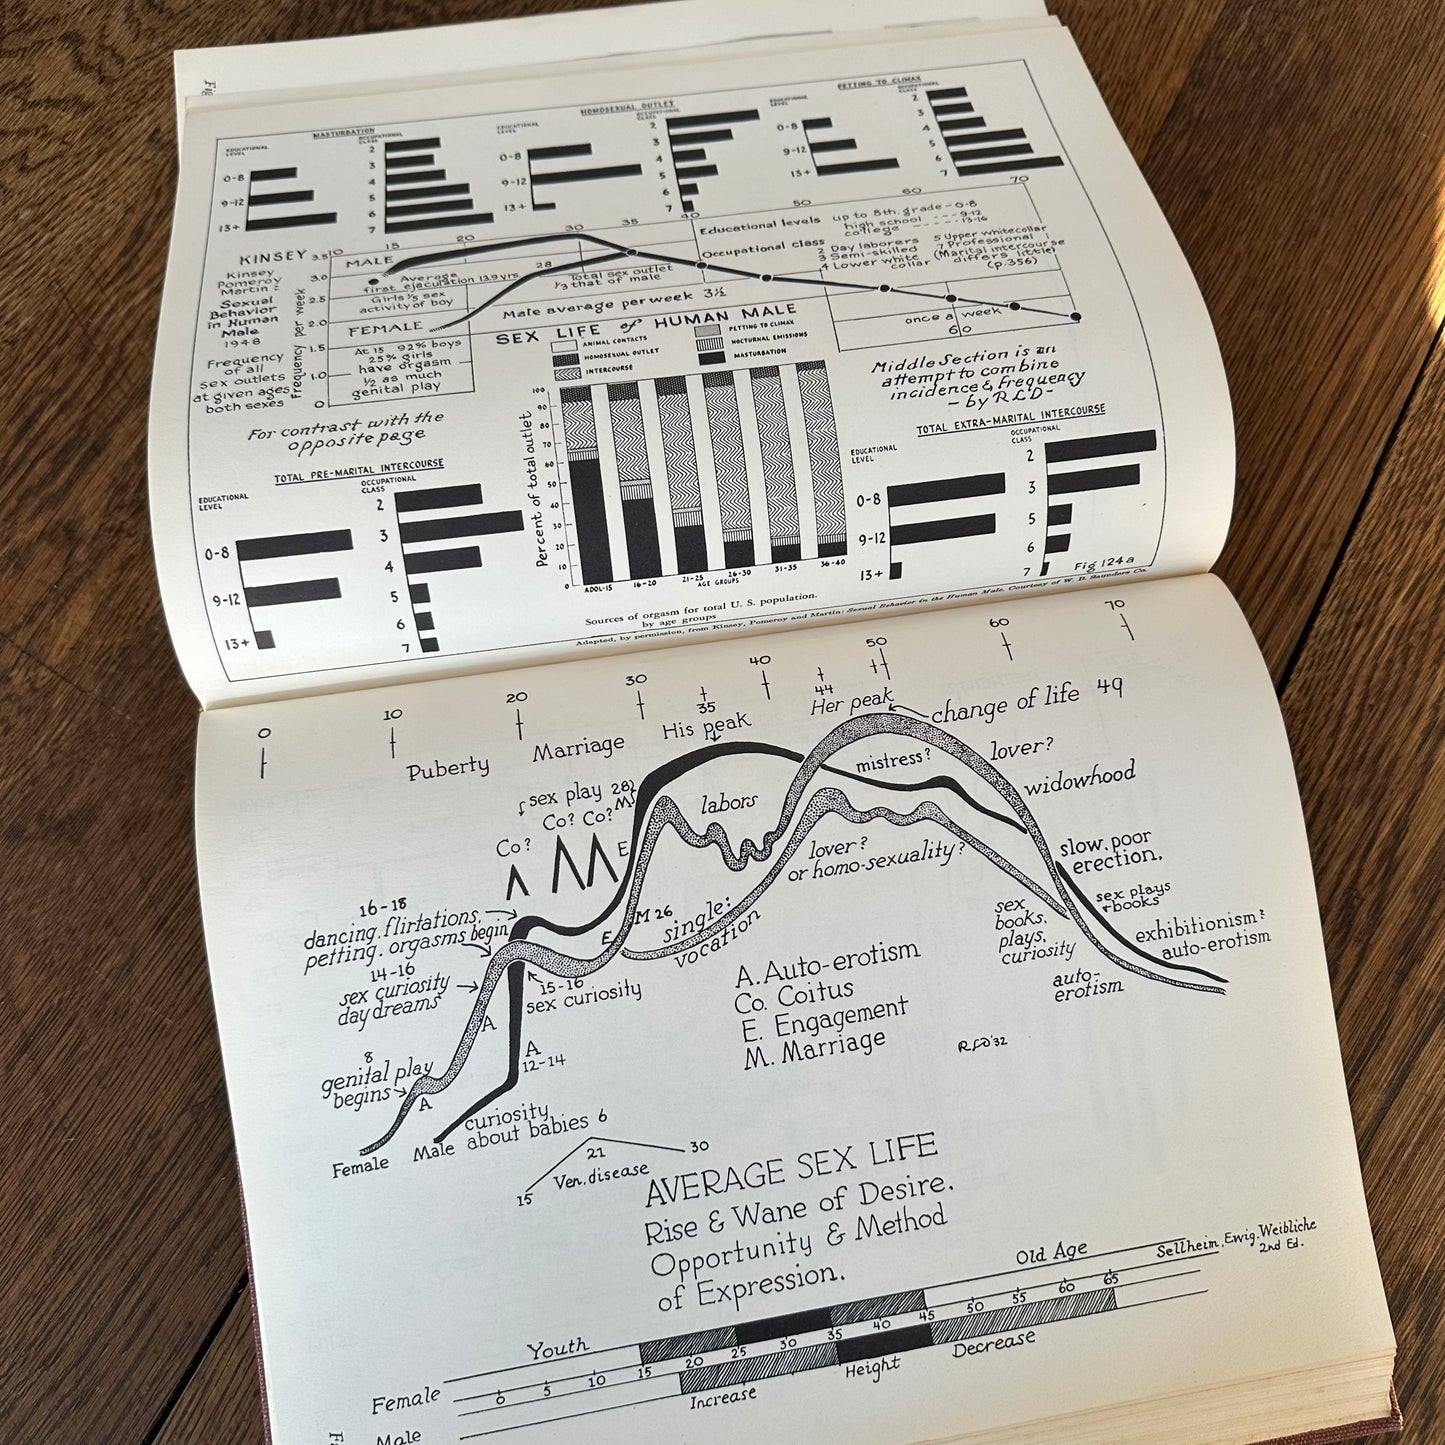 Fig
MASTURBATION
EDUCATIONAL
LEVEL
0-8
9-12
13+
OCCUPATIONAL
CLASS
2
3
4
5
6
7
HOMOSEXUAL OUTLET
EDUCATIONAL
LEVEL
0-8
9-12
13+
OCCUPATIONAL
CLASS
2
3
4
5
6
7
PETTING TO CLIMAX
EDUCATIONAL
LEVEL
0-8
9-12
13+
OCCUPATIONAL
CLASS
2
3
4
5
6
7
10 15 20 30 35 40 50 60 70
KINSEY
Kinsey
Pomeroy
Martin:
Sexual
Behavior
in Human
Male
1948
Frequency
of all
sex outlets
at given ages
both sexes
Frequency per week
3.5
3.0
2.5
2.0
1.5
1.0
0
MALE
Average
first ejaculation 13.9 yrs.
Girls 1/5 sex
activity of boy
FEMALE
At 15 92% boys
25% girls
have orgasm
1/2 as much
genital play
28
Total sex outlet
1/3 that of male
Male average per week 3½
Educational levels
up to 8th. grade - 0-8
high school - - - - 9-12
college - - - - - 13-16
Occupational class
2 Day laborers
3 Semi-skilled
4 Lower white
collar
5 Upper white collar
7 Professional
(Marital intercourse
differs little)
(p.356)
once a week
60
For contrast with the
opposite page
SEX LIFE of HUMAN MALE
ANIMAL CONTACTS
HOMOSEXUAL OUTLET
INTERCOURSE
PETTING TO CLIMAX
NOCTURNAL EMISSIONS
MASTURBATION
Percent of total outlet
100
90
80
70
60
50
40
30
20
10
0
ADOL-15 16-20 21-25 26-30 31-35 36-40
AGE GROUPS
Middle Section is an
attempt to combine
incidence & frequency
- by RLD -
TOTAL PRE-MARITAL INTERCOURSE
EDUCATIONAL
LEVEL
0-8
9-12
13+
OCCUPATIONAL
CLASS
2
3
4
5
6
7
TOTAL EXTRA-MARITAL INTERCOURSE
EDUCATIONAL
LEVEL
0-8
9-12
13+
OCCUPATIONAL
CLASS
2
3
5
6
7
Fig 124a
Sources of orgasm for total U. S. population.
by age groups
Adapted, by permission, from Kinsey, Pomeroy and Martin: Sexual Behavior in the Human Male. Courtesy of W. B. Saunders Co.
0 10 20 30 35 40 44 50 60 70
Puberty
Marriage
His peak
Her peak
change of life 49
mistress?
lover?
widowhood
sex play 28
Co?
Co? Co?
M
E
labors
lover?
or homo-sexuality?
slow, poor
erection,
sex plays
+ books
exhibitionism?
auto-erotism
sex
books,
plays,
curiosity
auto-
erotism
16-18
dancing, flirtations,
petting, orgasms begin
14-16
sex curiosity
day dreams
15-16
sex curiosity
E
M 26
single:
vocation
A
A
12-14
8
genital play
begins
A
curiosity
about babies 6
Female
Male
A. Auto-erotism
Co. Coitus
E. Engagement
M. Marriage
RLD '32
15 21 30
Ven. disease
AVERAGE SEX LIFE
Rise & Wane of Desire.
Opportunity & Method
of Expression.
Sellheim, Ewig. Weibliche
2nd Ed.
Youth
Old Age
Female
0 5 10 15 20 25 30 35 40 45 50 55 60 65
Increase
Height
Decrease
Male